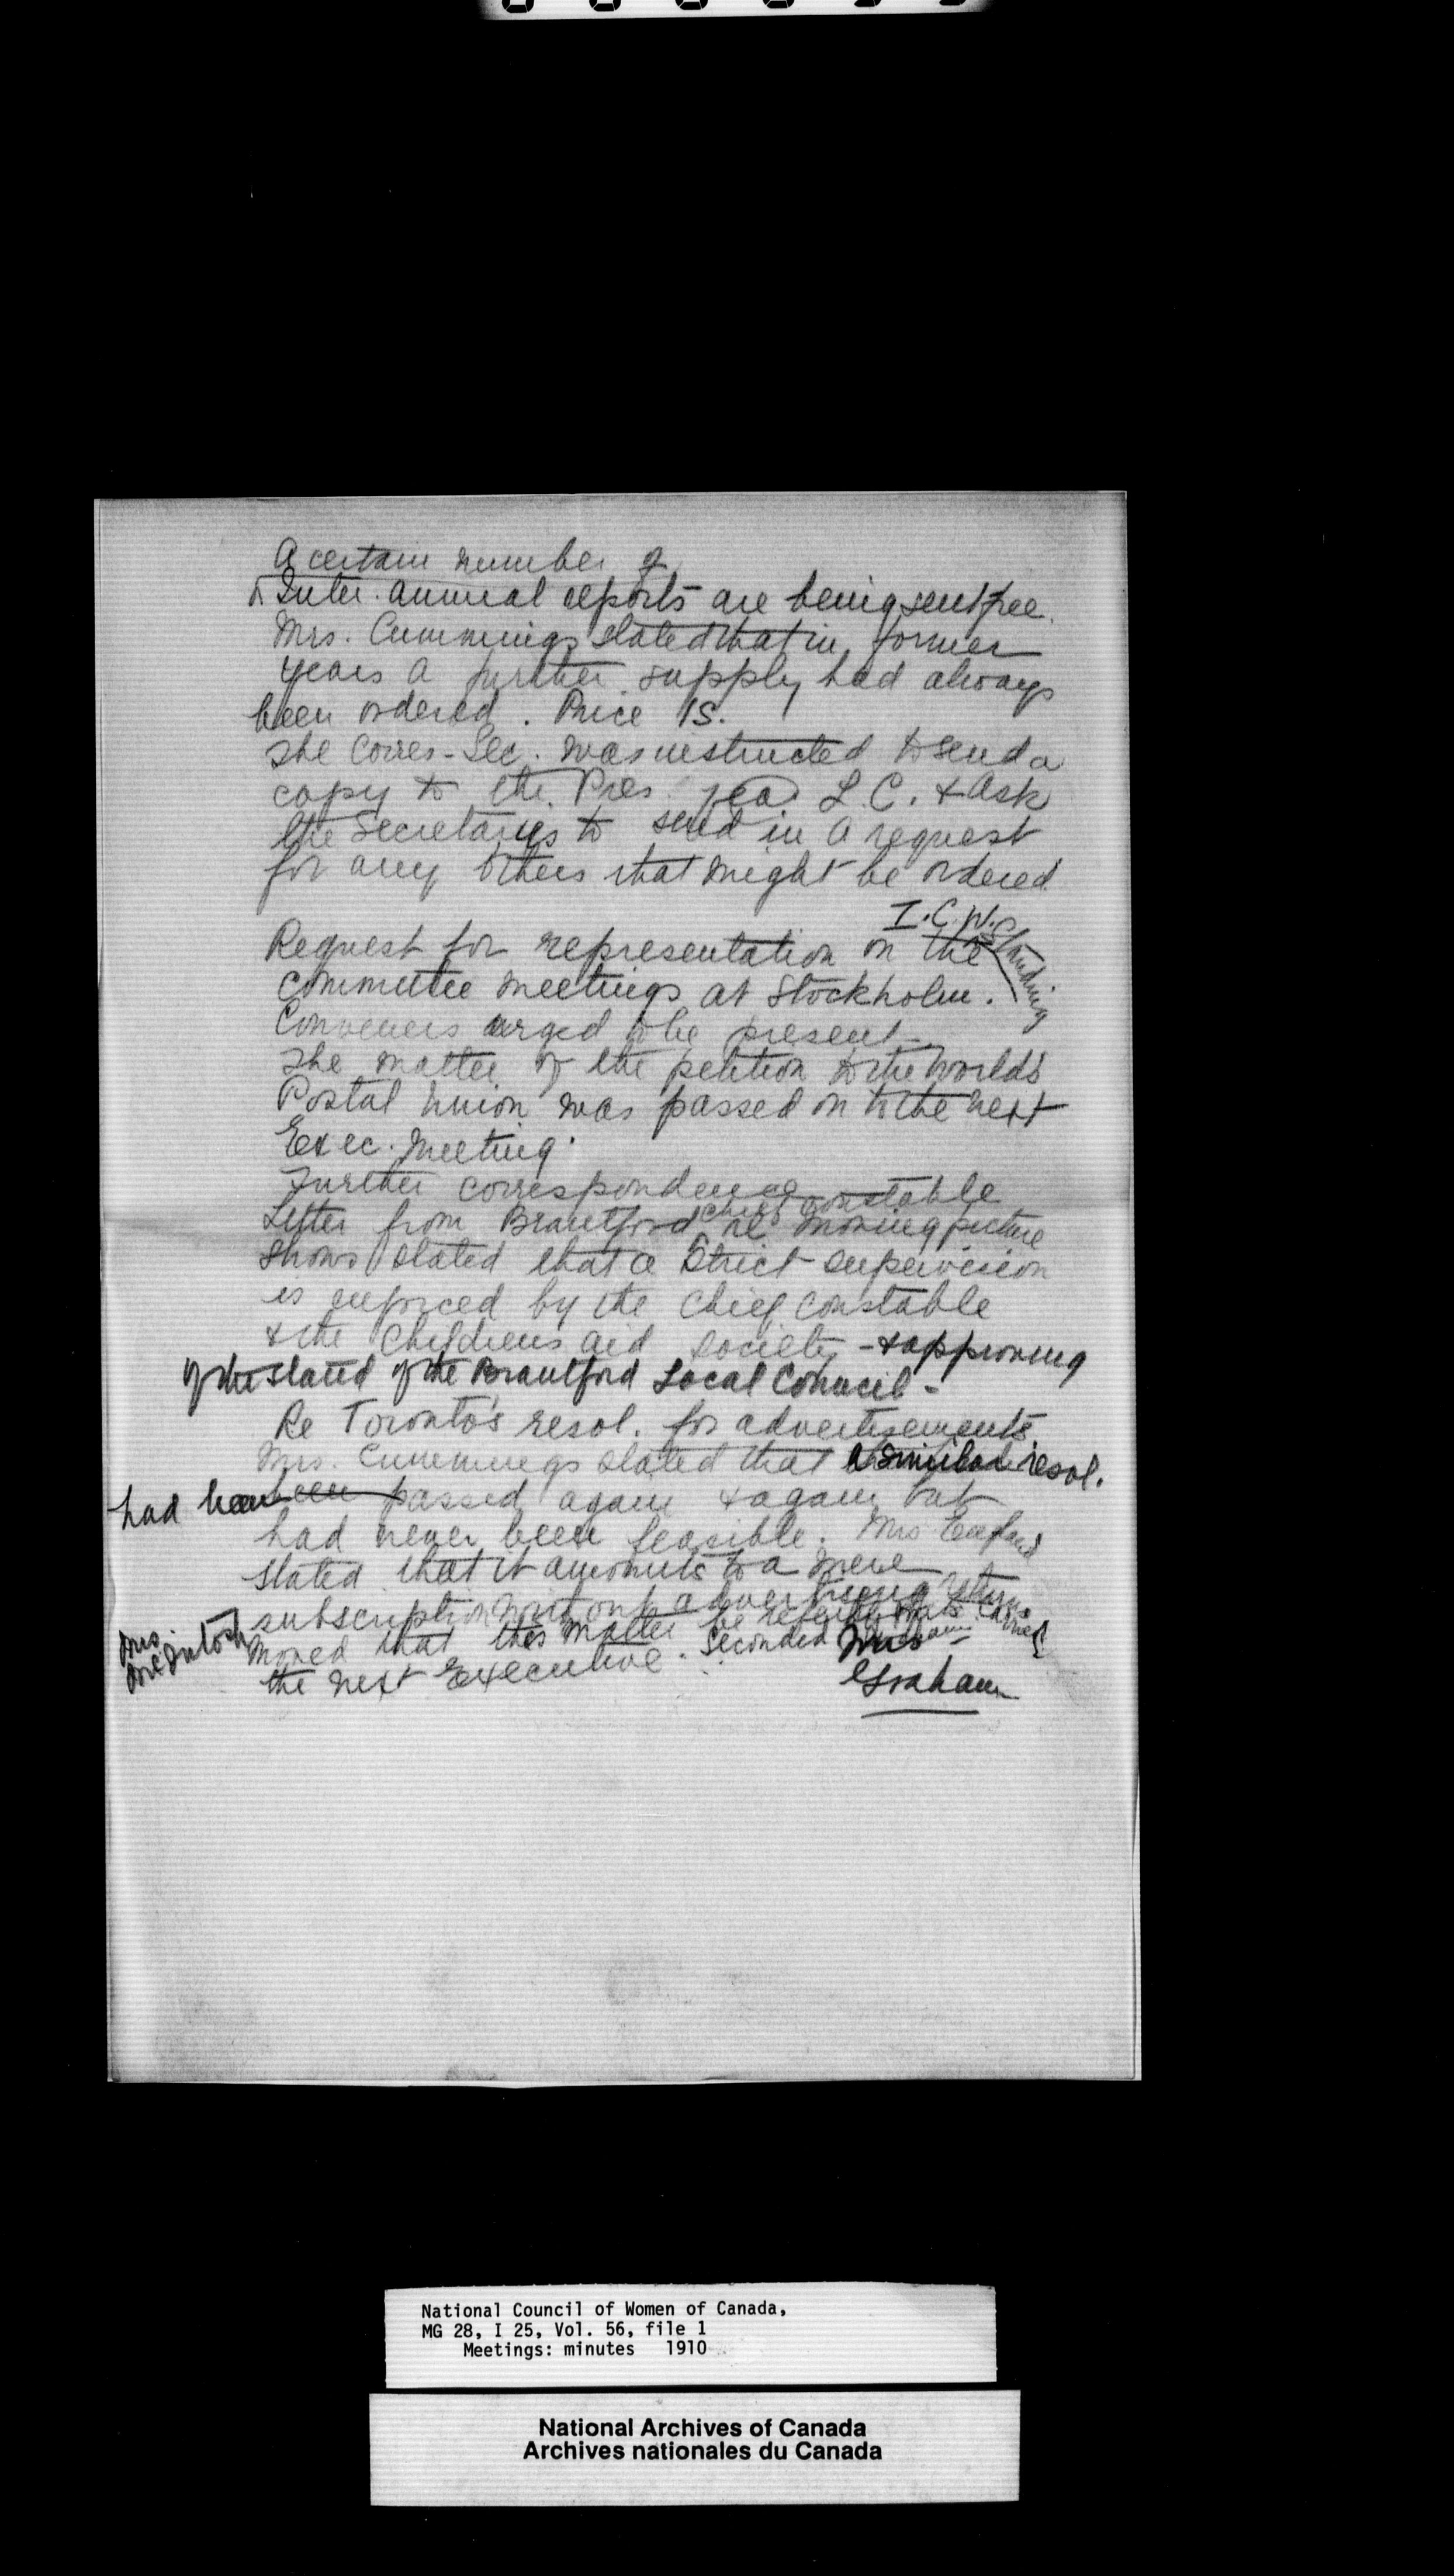 A certain number of
Inter. annual reports are being sent free.
Mrs. Cummings stated that in former
years a further supply had always
been ordered. Price 1S.
The Corres-Sec. was instructed to send a
copy to the Pres. of ea. L.C. & ask
the Secretaries to send in a request
for any others that might be ordered
I.C.W. Standing
Request for representation on the
committee meetings at Stockholm.
Conveners urged to be present -
The matter of the petition to the World's
Postal Union was passed on to the next
Exec. meeting.
Further correspondence
chief constable
Letter from Brantford re moving picture
shows stated that a strict supervision
is enforced by the chief constable
& the Childrens aid society - & approving
of the stand of the Brantford Local Council -
Re Toronto's resol. for advertisements
Mrs. Cummings stated that a similar resol.
had been passed again & again but
had never been feasible. Mrs England
stated that it amounts to a mere
subscription without advertising returns
Mrs. McIntosh moved that this matter be referred to carried
the next Executive. Seconded Mrs
Graham
National Council of Women of Canada,
MG 28, I 25, Vol. 56, file 1
Meetings: minutes 1910
National Archives of Canada
Archives nationales du Canada